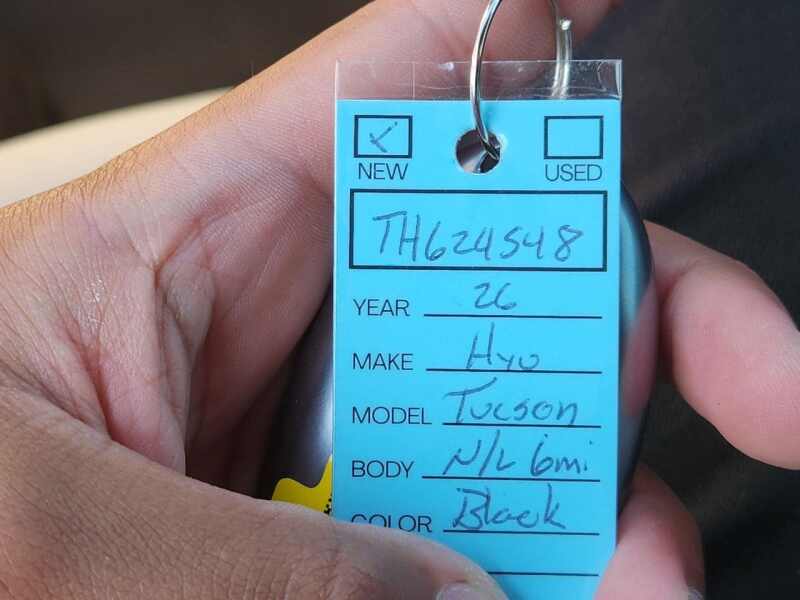 NEW USED
TH624548
YEAR 26
MAKE Hyu
MODEL Tucson
BODY N/L 6mi
COLOR Black